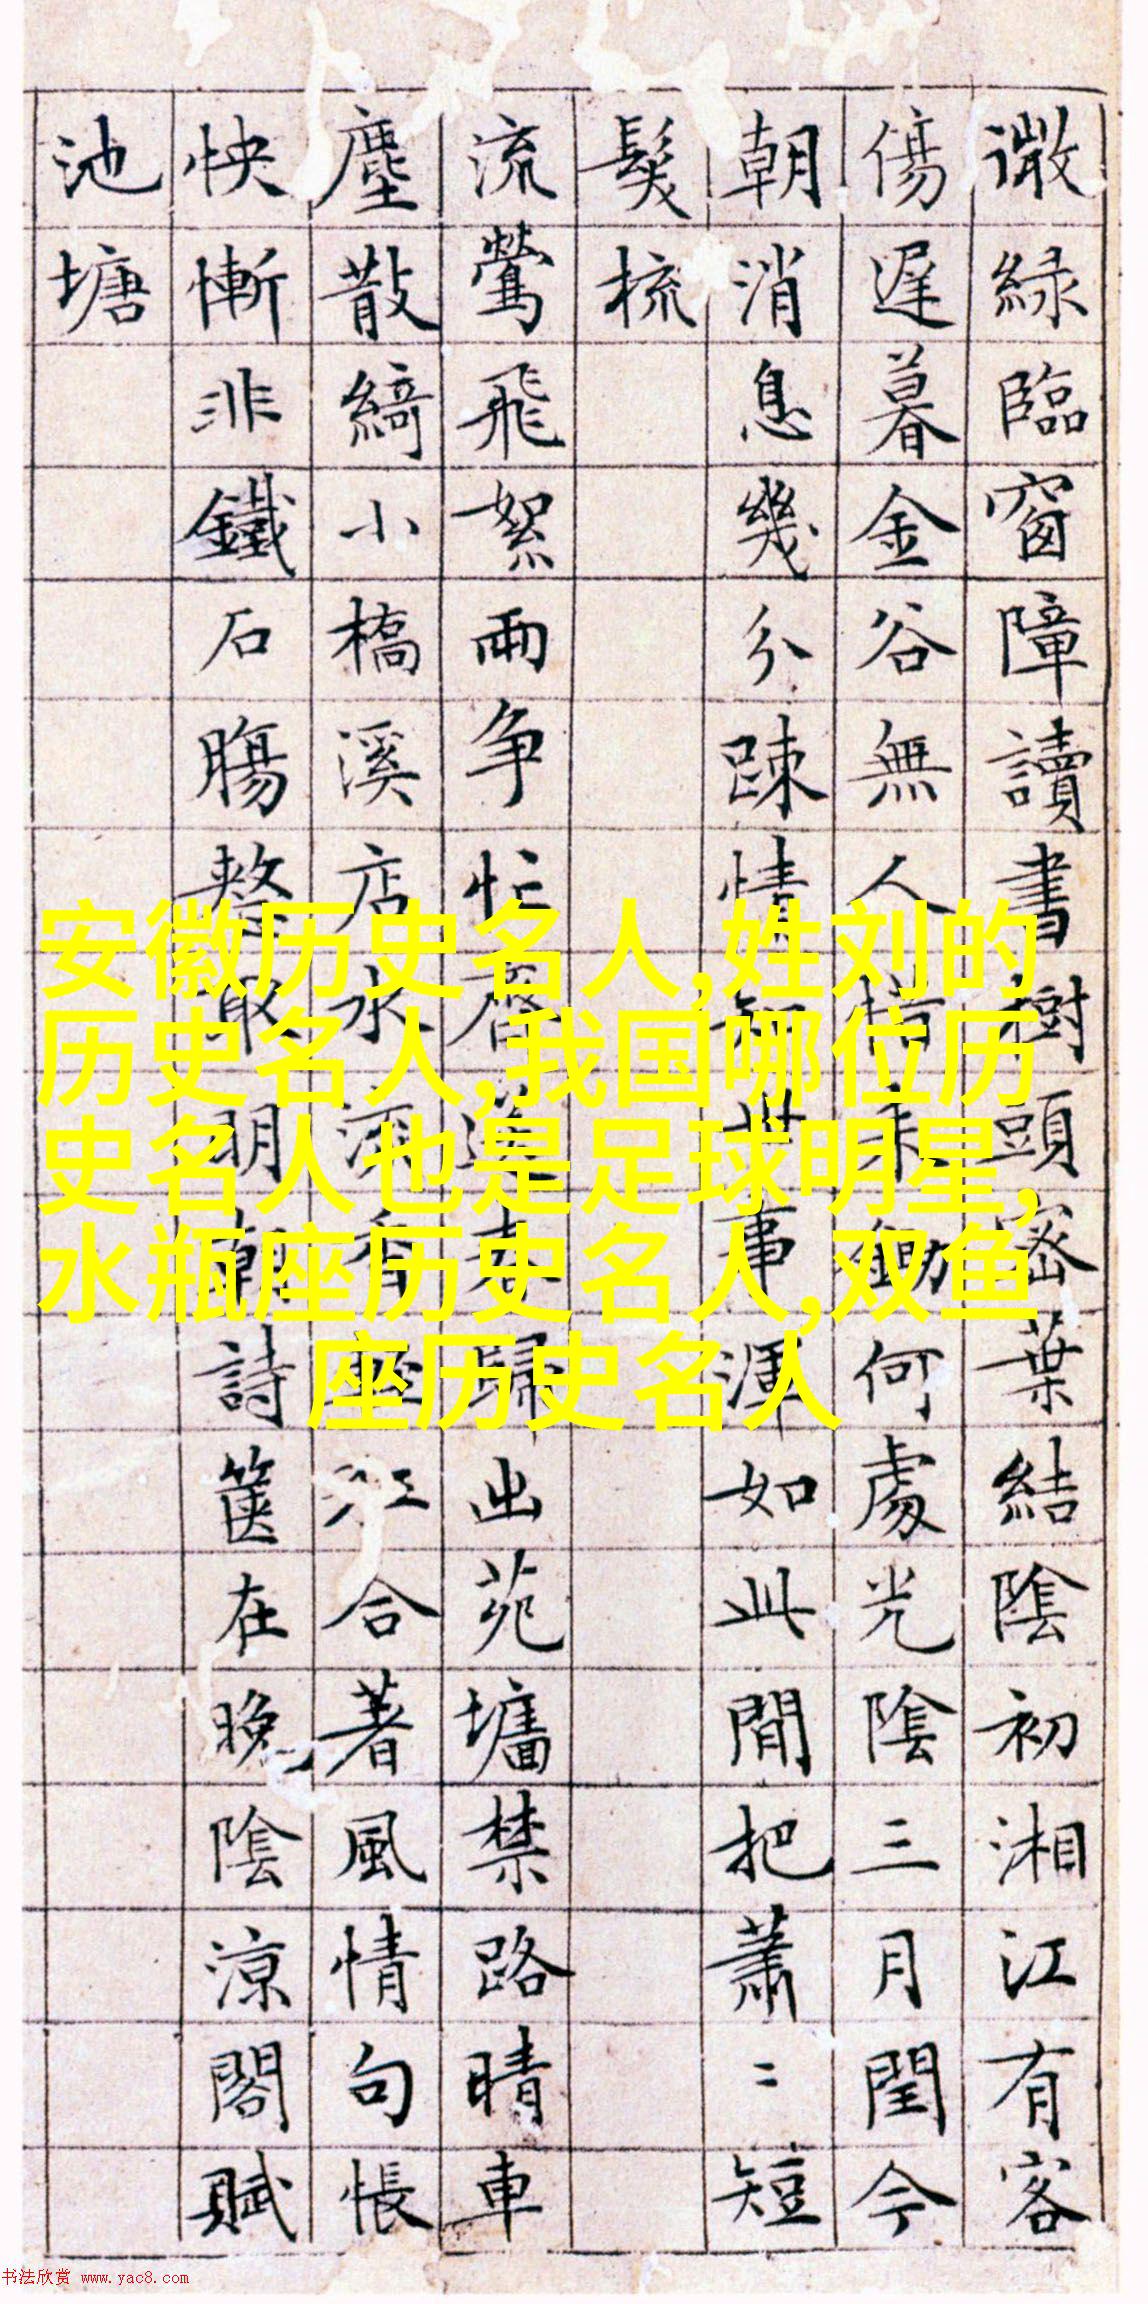 微綠臨窗障讀書樹頭密葉結陰初湘江有客
傷遲暮金谷無人惜未鋤何處光陰三月閏今
朝消息幾分踈情知世事渾如此閒把蕭〻短
髮梳
流鶯飛絮兩争忙送春歸出苑墻禁路晴車
塵散綺小橋溪店水酒香江合著風情句悵
怏慚非鐵石腸整取明朝詩篋在晚陰涼閣賦
池塘
安徽历史名人,姓刘的
历史名人,我国哪位历
史名人也是足球明星,
水瓶座历史名人,双鱼
座历史名人
书法欣赏 www.yac8.com